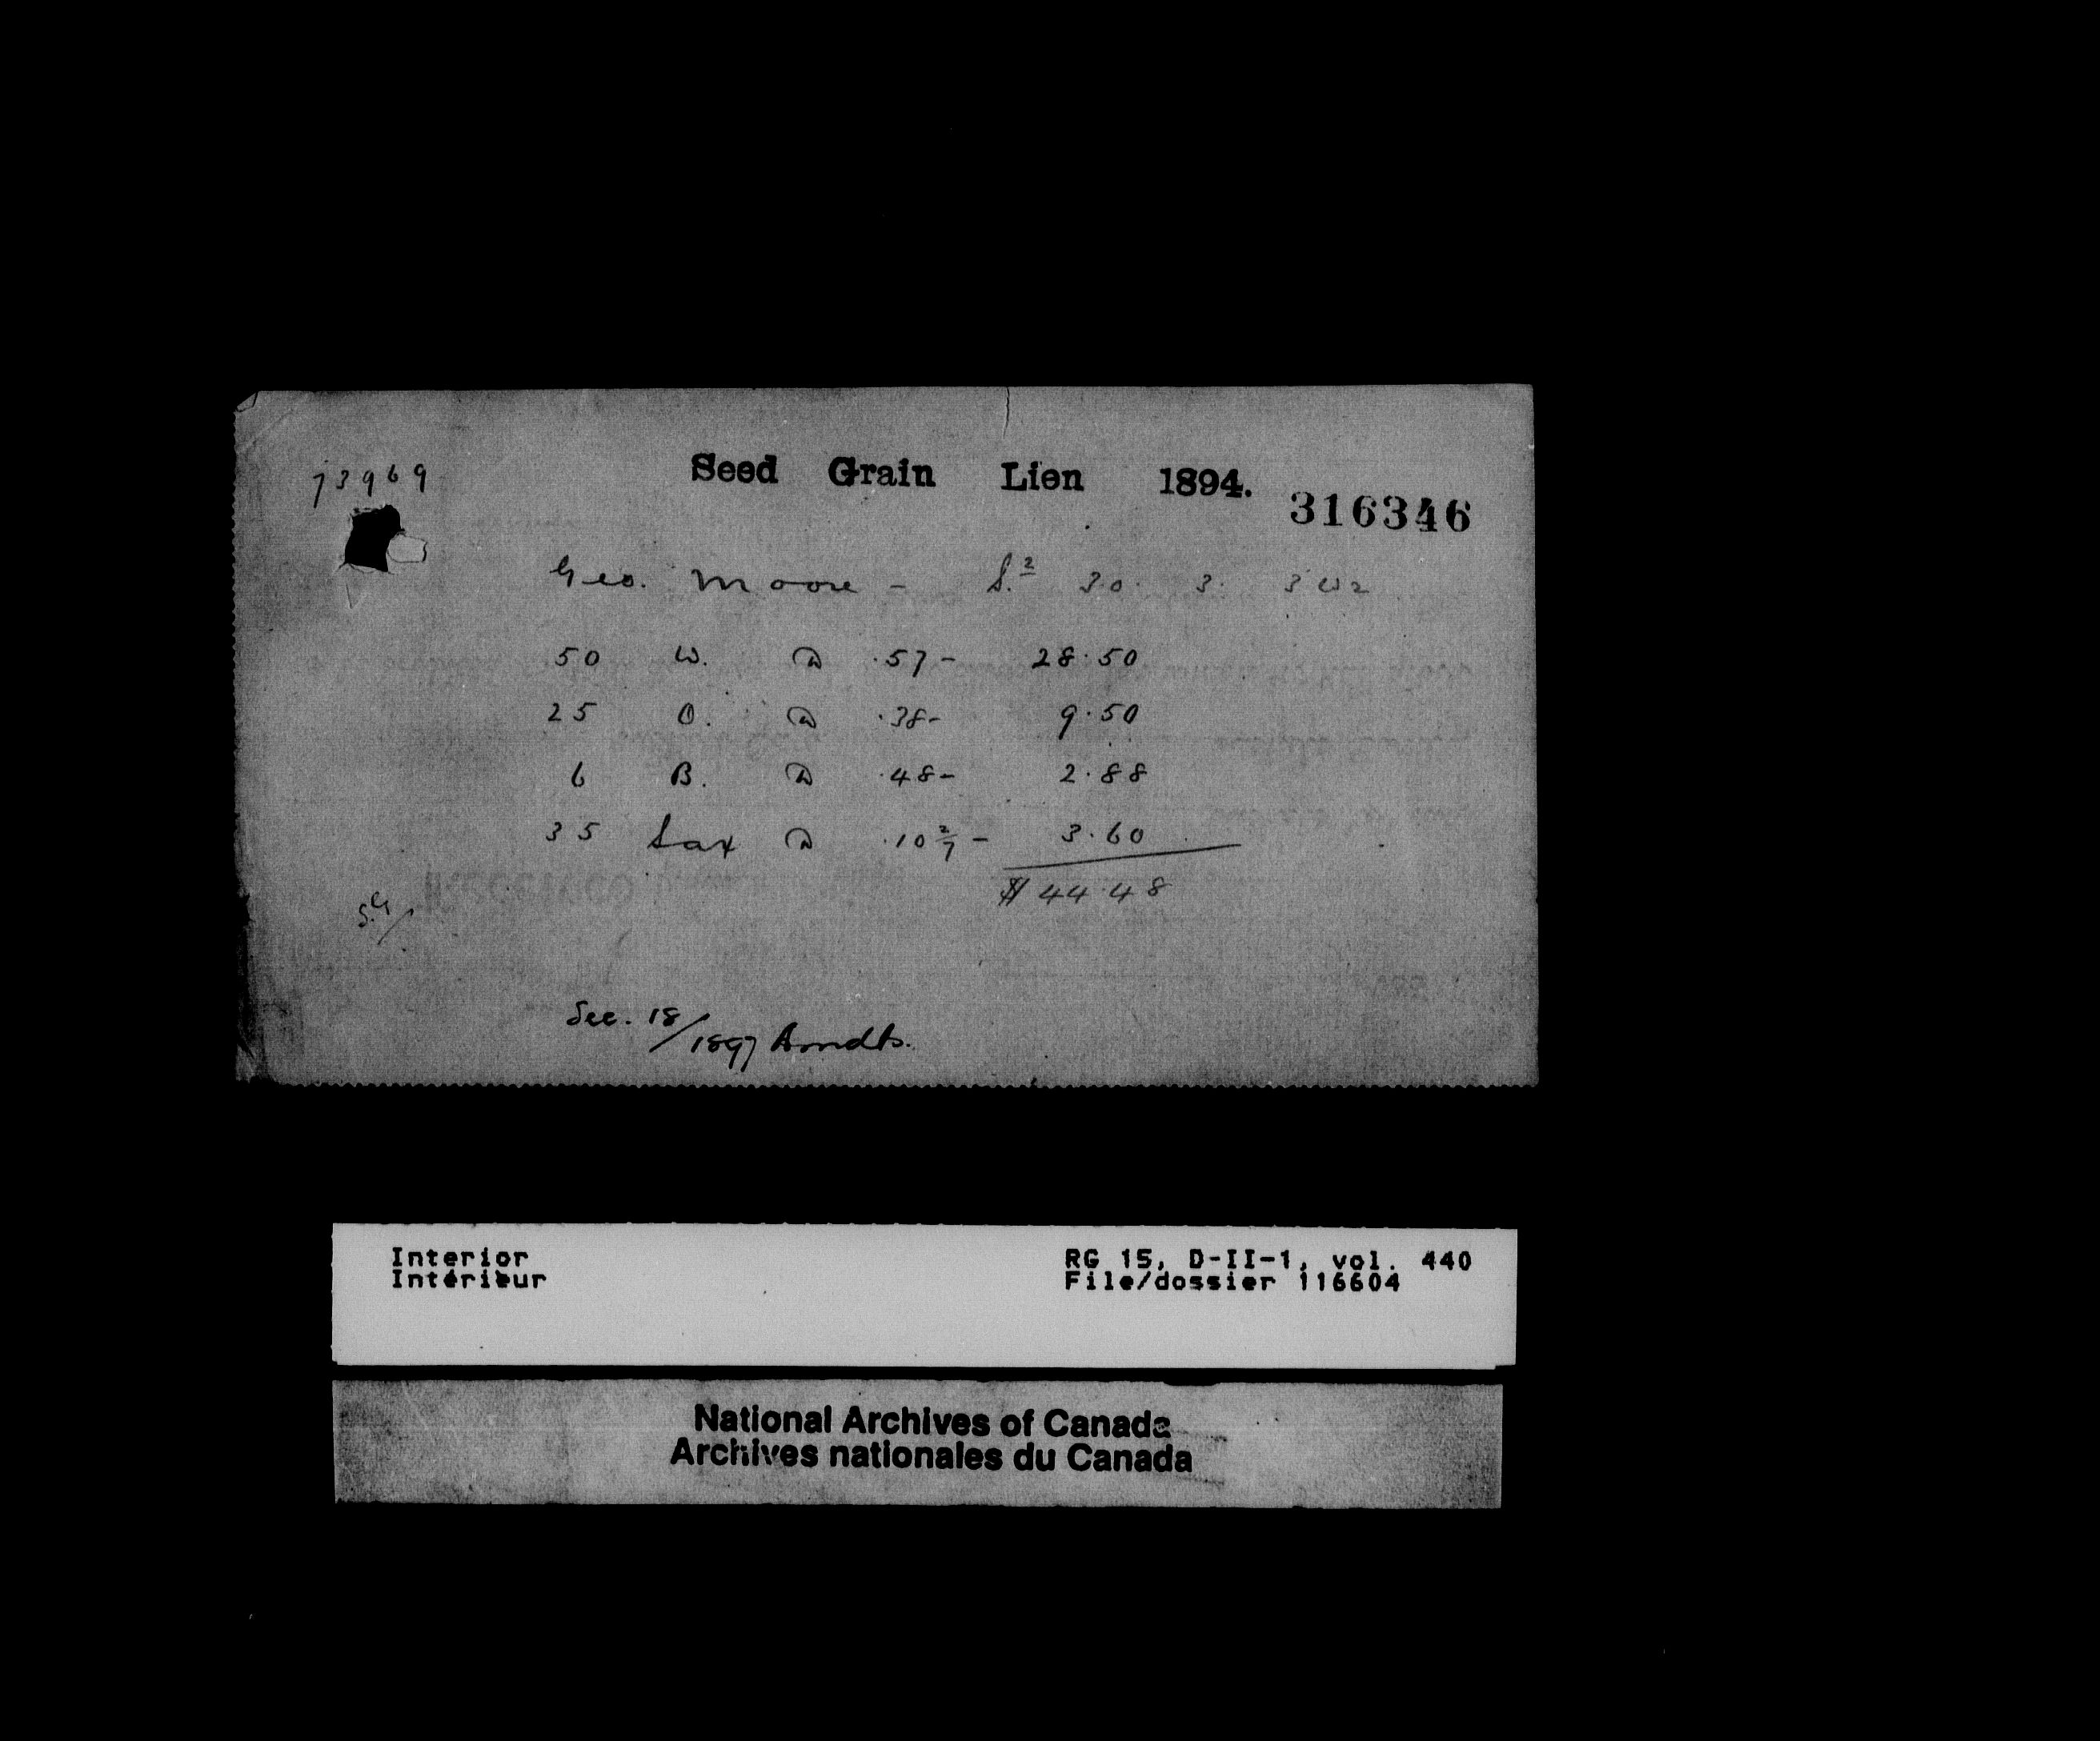 73969
Seed Grain Lien 1894.
316346
Geo. Moore - S.2 30. 3. 3 W2
50 W. @ .57- 28.50
25 O. @ .38- 9.50
6 B. @ .48- 2.88
35 Sax @ .10 2/7 - 3.60
$44.48
S.G/
Sec. 18/1897 Amdts.
Interior
Intérieur
RG 15, D-II-1, vol. 440
File/dossier 116604
National Archives of Canada
Archives nationales du Canada